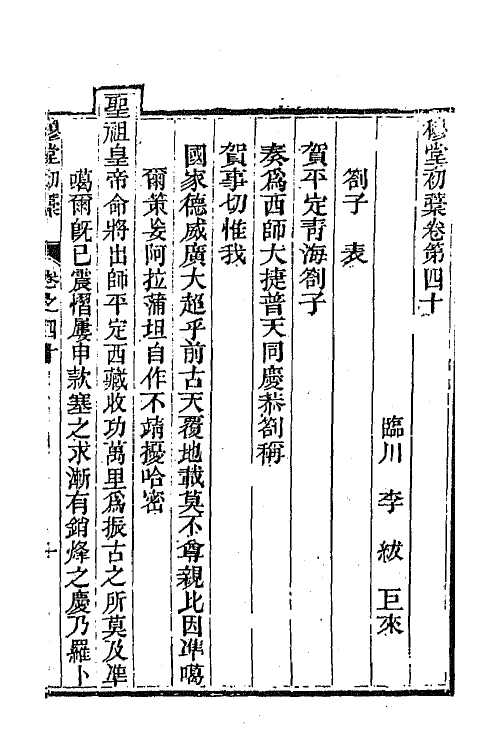 穆堂初稾卷第四十
臨川　李　紱　巨來
劄子　表
賀平定青海劄子
奏爲西師大捷普天同慶恭劄稱
賀事切惟我
國家德威廣大超乎前古天覆地載莫不尊親比因準噶
爾策妄阿拉蒲坦自作不靖擾哈密
聖祖皇帝命將出師平定西藏收功萬里爲振古之所莫及準
噶爾旣已震慴屢申款塞之求漸有銷烽之慶乃羅卜
穆堂初稾　卷之四十